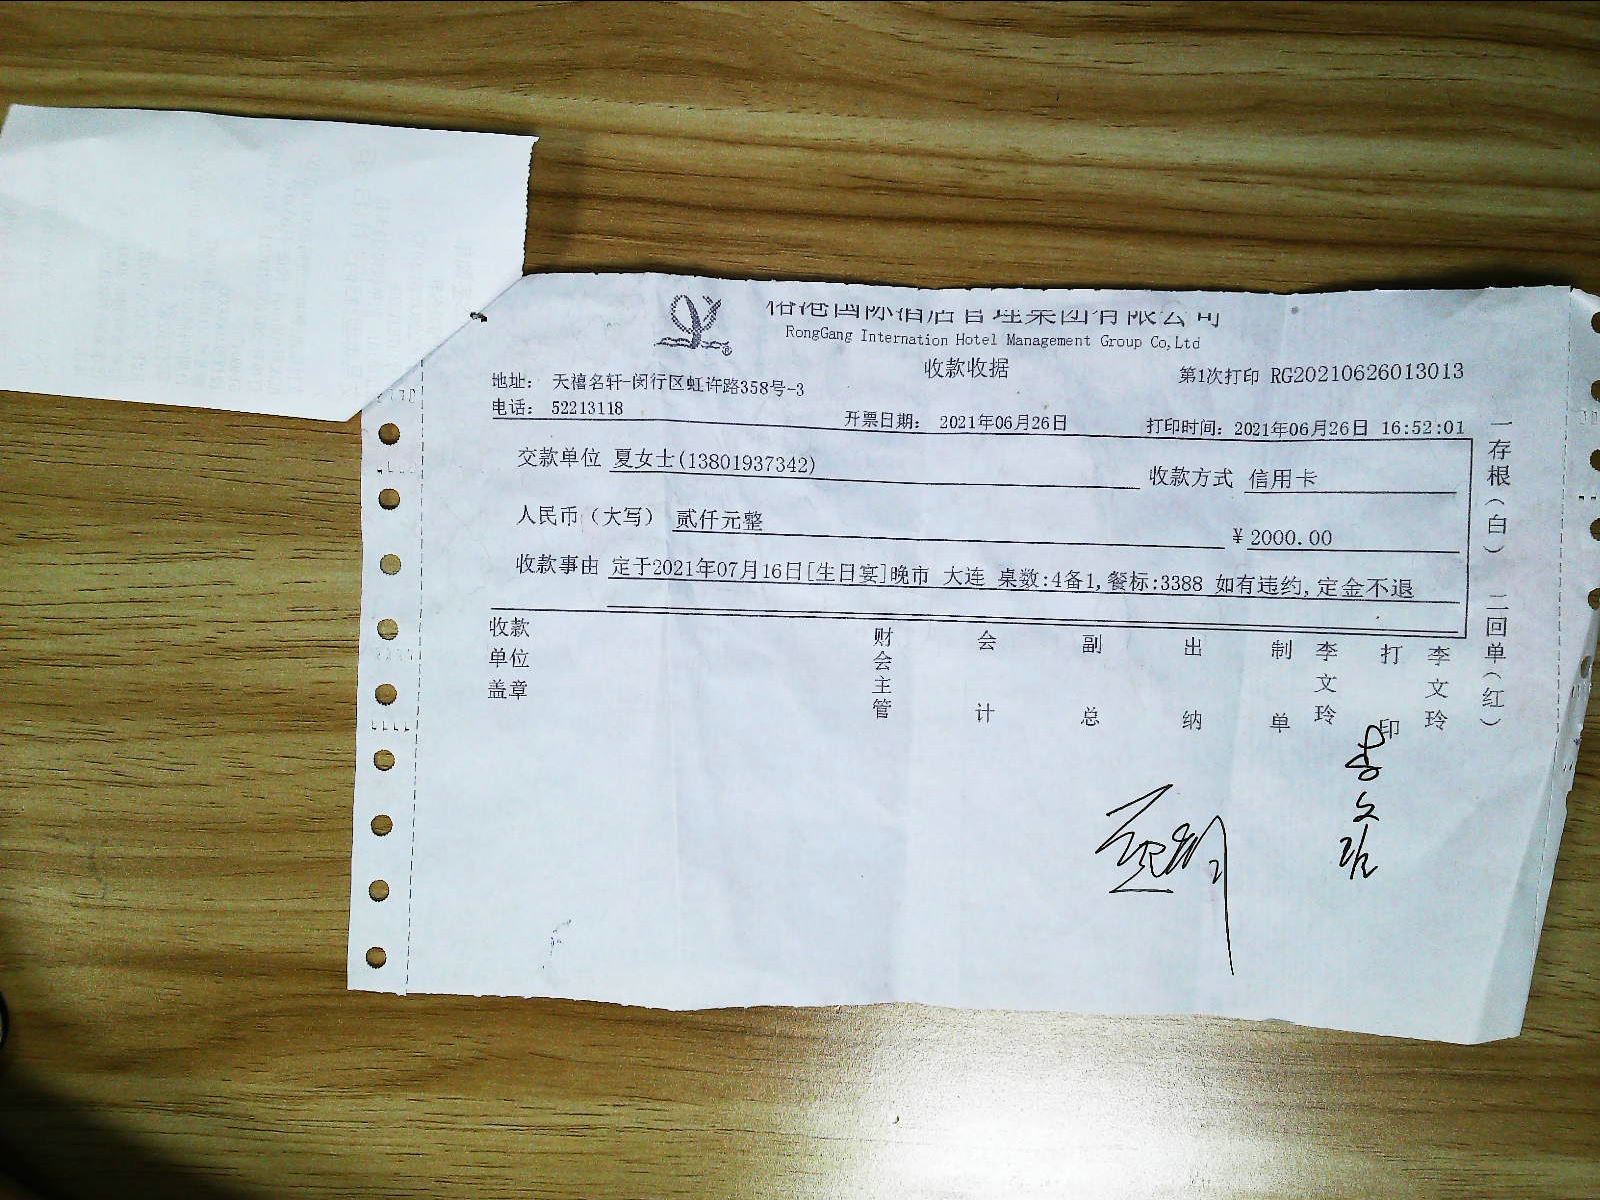 港国际酒店管理集团有限公司
RongGang Internation Hotel Management Group Co,Ltd
收款收据
第1次打印 RG20210626013013
地址： 天禧名轩-闵行区虹许路358号-3
电话： 52213118
开票日期： 2021年06月26日
打印时间：2021年06月26日 16:52:01
交款单位 夏女士(13801937342)
收款方式 信用卡
人民币（大写） 贰仟元整
￥2000.00
收款事由 定于2021年07月16日[生日宴]晚市 大连 桌数:4备1,餐标:3388 如有违约,定金不退
收款单位盖章
财会主管
会计
副总
出纳
制单 李文玲
打印 李文玲
李文玲
一存根（白） 二回单（红）